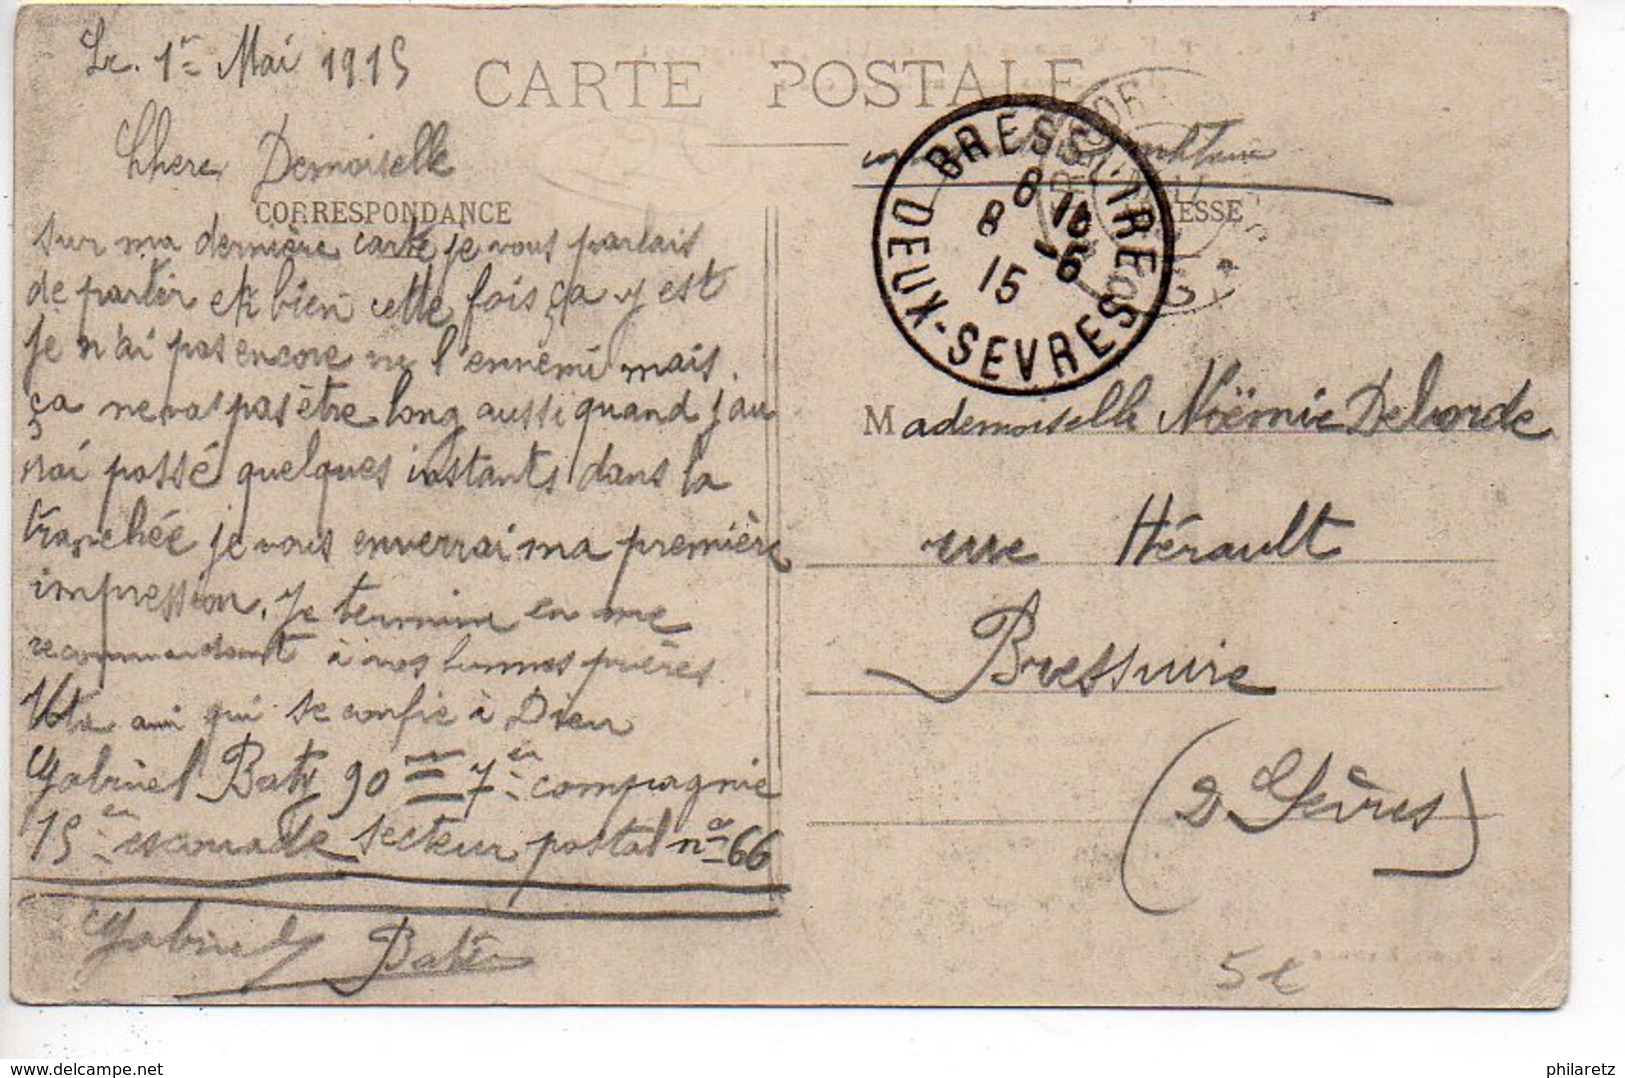 Le. 1er Mai 1915
CARTE POSTALE
Chere Demoiselle
CORRESPONDANCE
sur ma dernière carte je vous parlais
de partir eh bien cette fois ça y est
je n'ai pas encore vu l'ennemi mais
ça ne vas pas être long aussi quand j'au
rai passé quelques instants dans la
tranchée je vous enverrai ma première
impression. Je termine en me
recommandant à vos bonnes prières
Votre ami qui se confie à Dieu
Gabriel Baty 90 7e compagnie
15e escouade secteur postal no 66
Gabriel
BRESSUIRE
8 8 15
DEUX-SEVRES
Mademoiselle Noëmie Deborde
rue Hérault
Bressuire
(2 Sèvres)
5€
philaretz